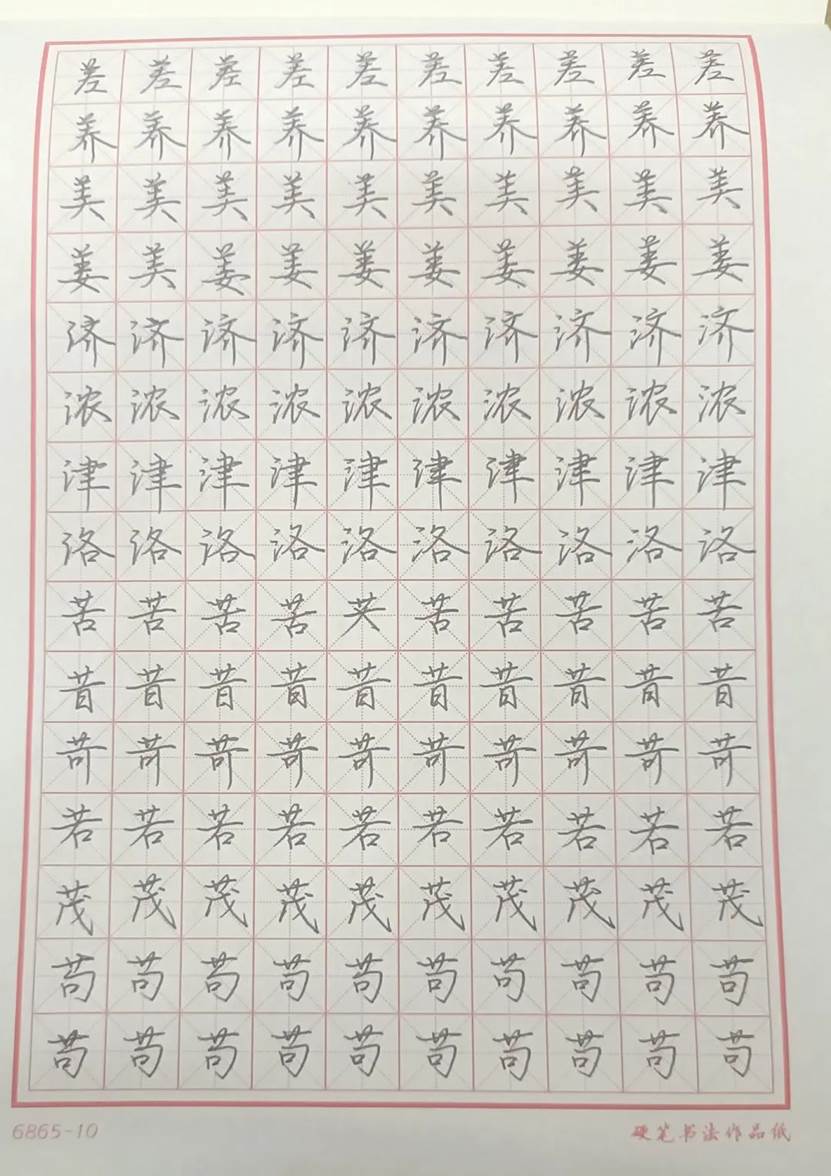 差差差差差差差差差差
养养养养养养养养养养
美美美美美美美美美美
姜美姜姜姜姜姜姜姜姜
济济济济济济济济济济
浓浓浓浓浓浓浓浓浓浓
津津津津津津津津津津
洛洛洛洛洛洛洛洛洛洛
苦苦苦苦苂苦苦苦苦苦
昔昔昔昔昔昔昔昔昔昔
苛苛苛苛苛苛苛苛苛苛
若若若若若若若若若若
茂茂茂茂茂茂茂茂茂茂
苟苟苟苟苟苟苟苟苟苟
苟苟苟苟苟苟苟苟苟苟
6865-10 硬笔书法作品纸